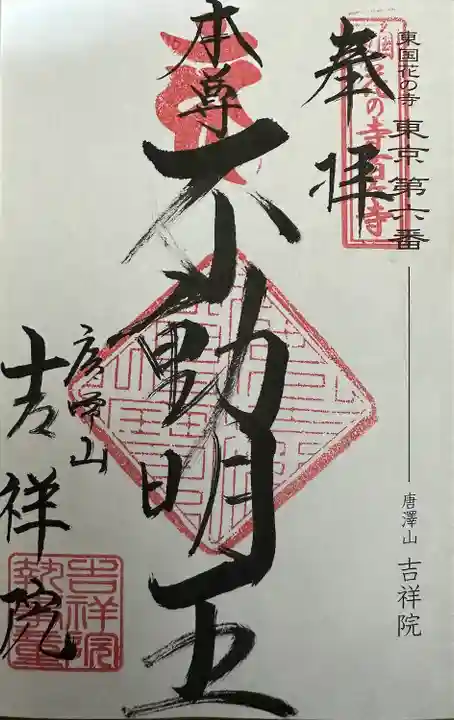 東国花の寺 東京 第六番
唐澤山 吉祥院
奉拝
東国花の寺百ヶ寺
本尊 不動明王
唐澤山
吉祥院
吉祥院